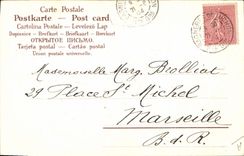 Carte Postale
Postkarte — Post card
Cartolina Postale - Levelező Lap
Dopisnice - Brefkort - Briefkaart - Brevkort
ОТКРЫТОЕ ПИСЬМО.
Tarjeta postal - Cartão postal
Union postale universelle.
Mademoiselle Marg. Brolliat
29 Place St Michel
Marseille
B. d. R.